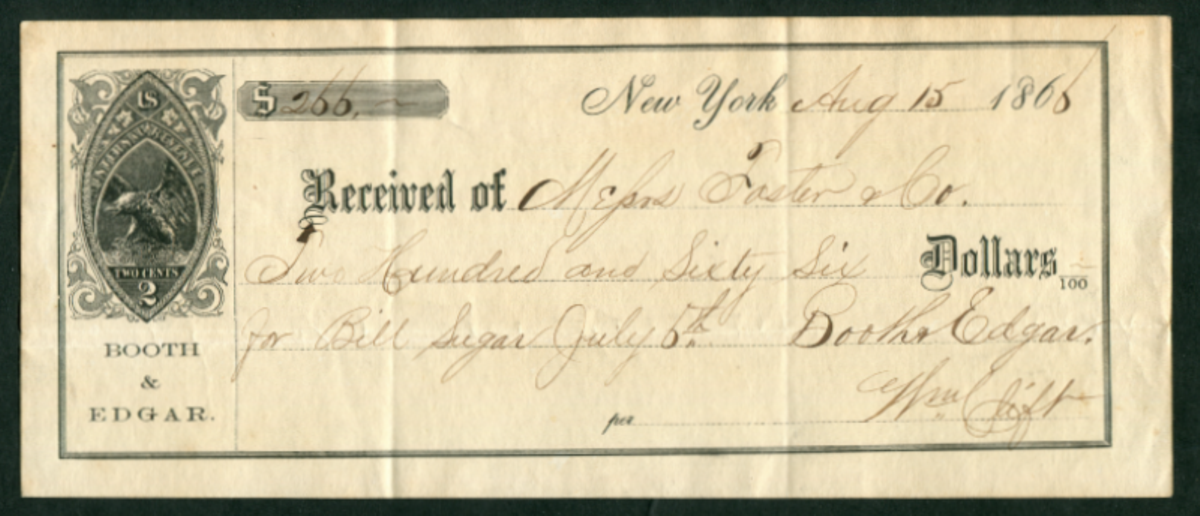 US
INTER. REVENUE
TWO CENTS
2
BOOTH
&
EDGAR.
$ 266.~
New York Aug 15 1866
Received of Messrs Foster & Co.
Two Hundred and Sixty Six Dollars —/100
for Bill Sugar July 5th. Booth & Edgar.
per Wm Clift